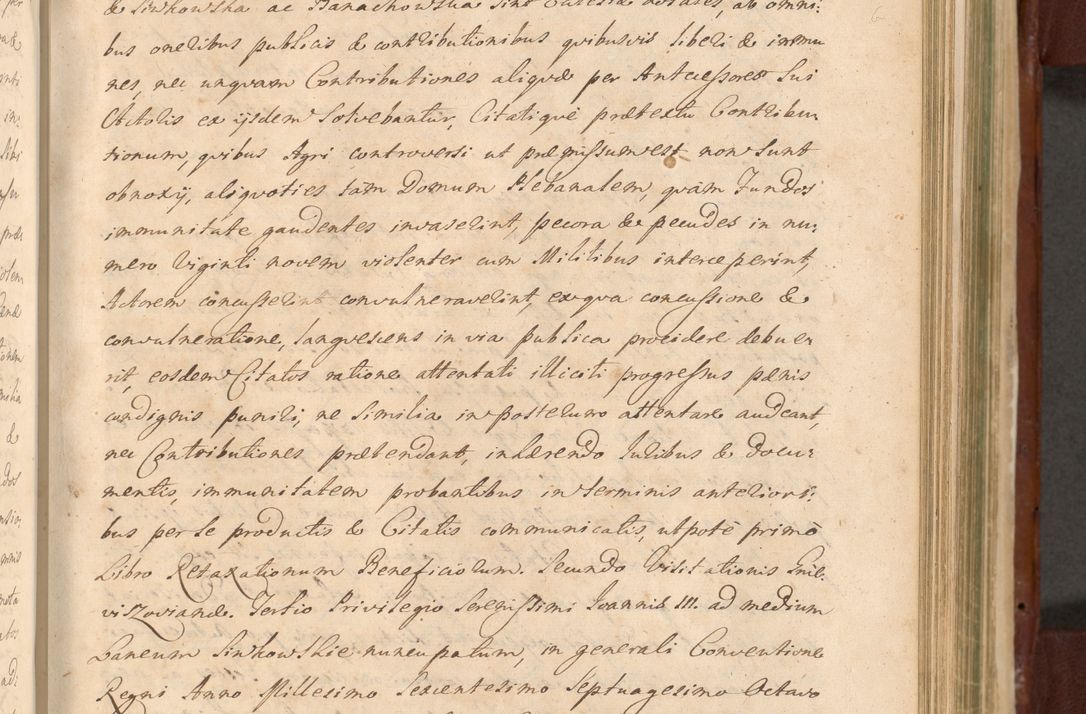 & Sinkowska ac Banachowska sint Ecclesiæ dotales, ab omni:
bus oneribus publicis & contributionibus quibusvis liberi & immu
nes, nec unquam Contributiones aliquæ per Antecessores sui
Actoris ex ijsdem solvebantur, Citatique prætextu Contribu
tionum, quibus Agri controversi ut præmissum est non sunt
obnoxij, aliquoties tam Domum Plebanalem, quàm Fundos
immunitate gaudentes invaserint, pecora & pecudes in nu:
mero viginti novem violenter cum Militibus interceperint,
Actorem concusserint convulneraverint, ex qua concussione &
convulneratione, languescens in via publica procidere debue
rit, eosdem Citatos ratione attentati illiciti progressus pænis
condignis puniri, ne similia in posterum attentare audeant,
nec Contributiones prætendant, inhærendo Juribus & Docu:
mentis, immunitatem probantibus in terminis anteriori:
bus per se productis & Citatis communicatis, utpotè primò
Libro Retaxationum Beneficiorum. Secundo Visitationis
viszovianæ. Tertio Privilegio Serenissimi Joannis III. ad medium
Laneum Sinkowskie nuncupatum, in generali Conventione
Regni Anno Millesimo Sexcentesimo Septuagesimo Octavo